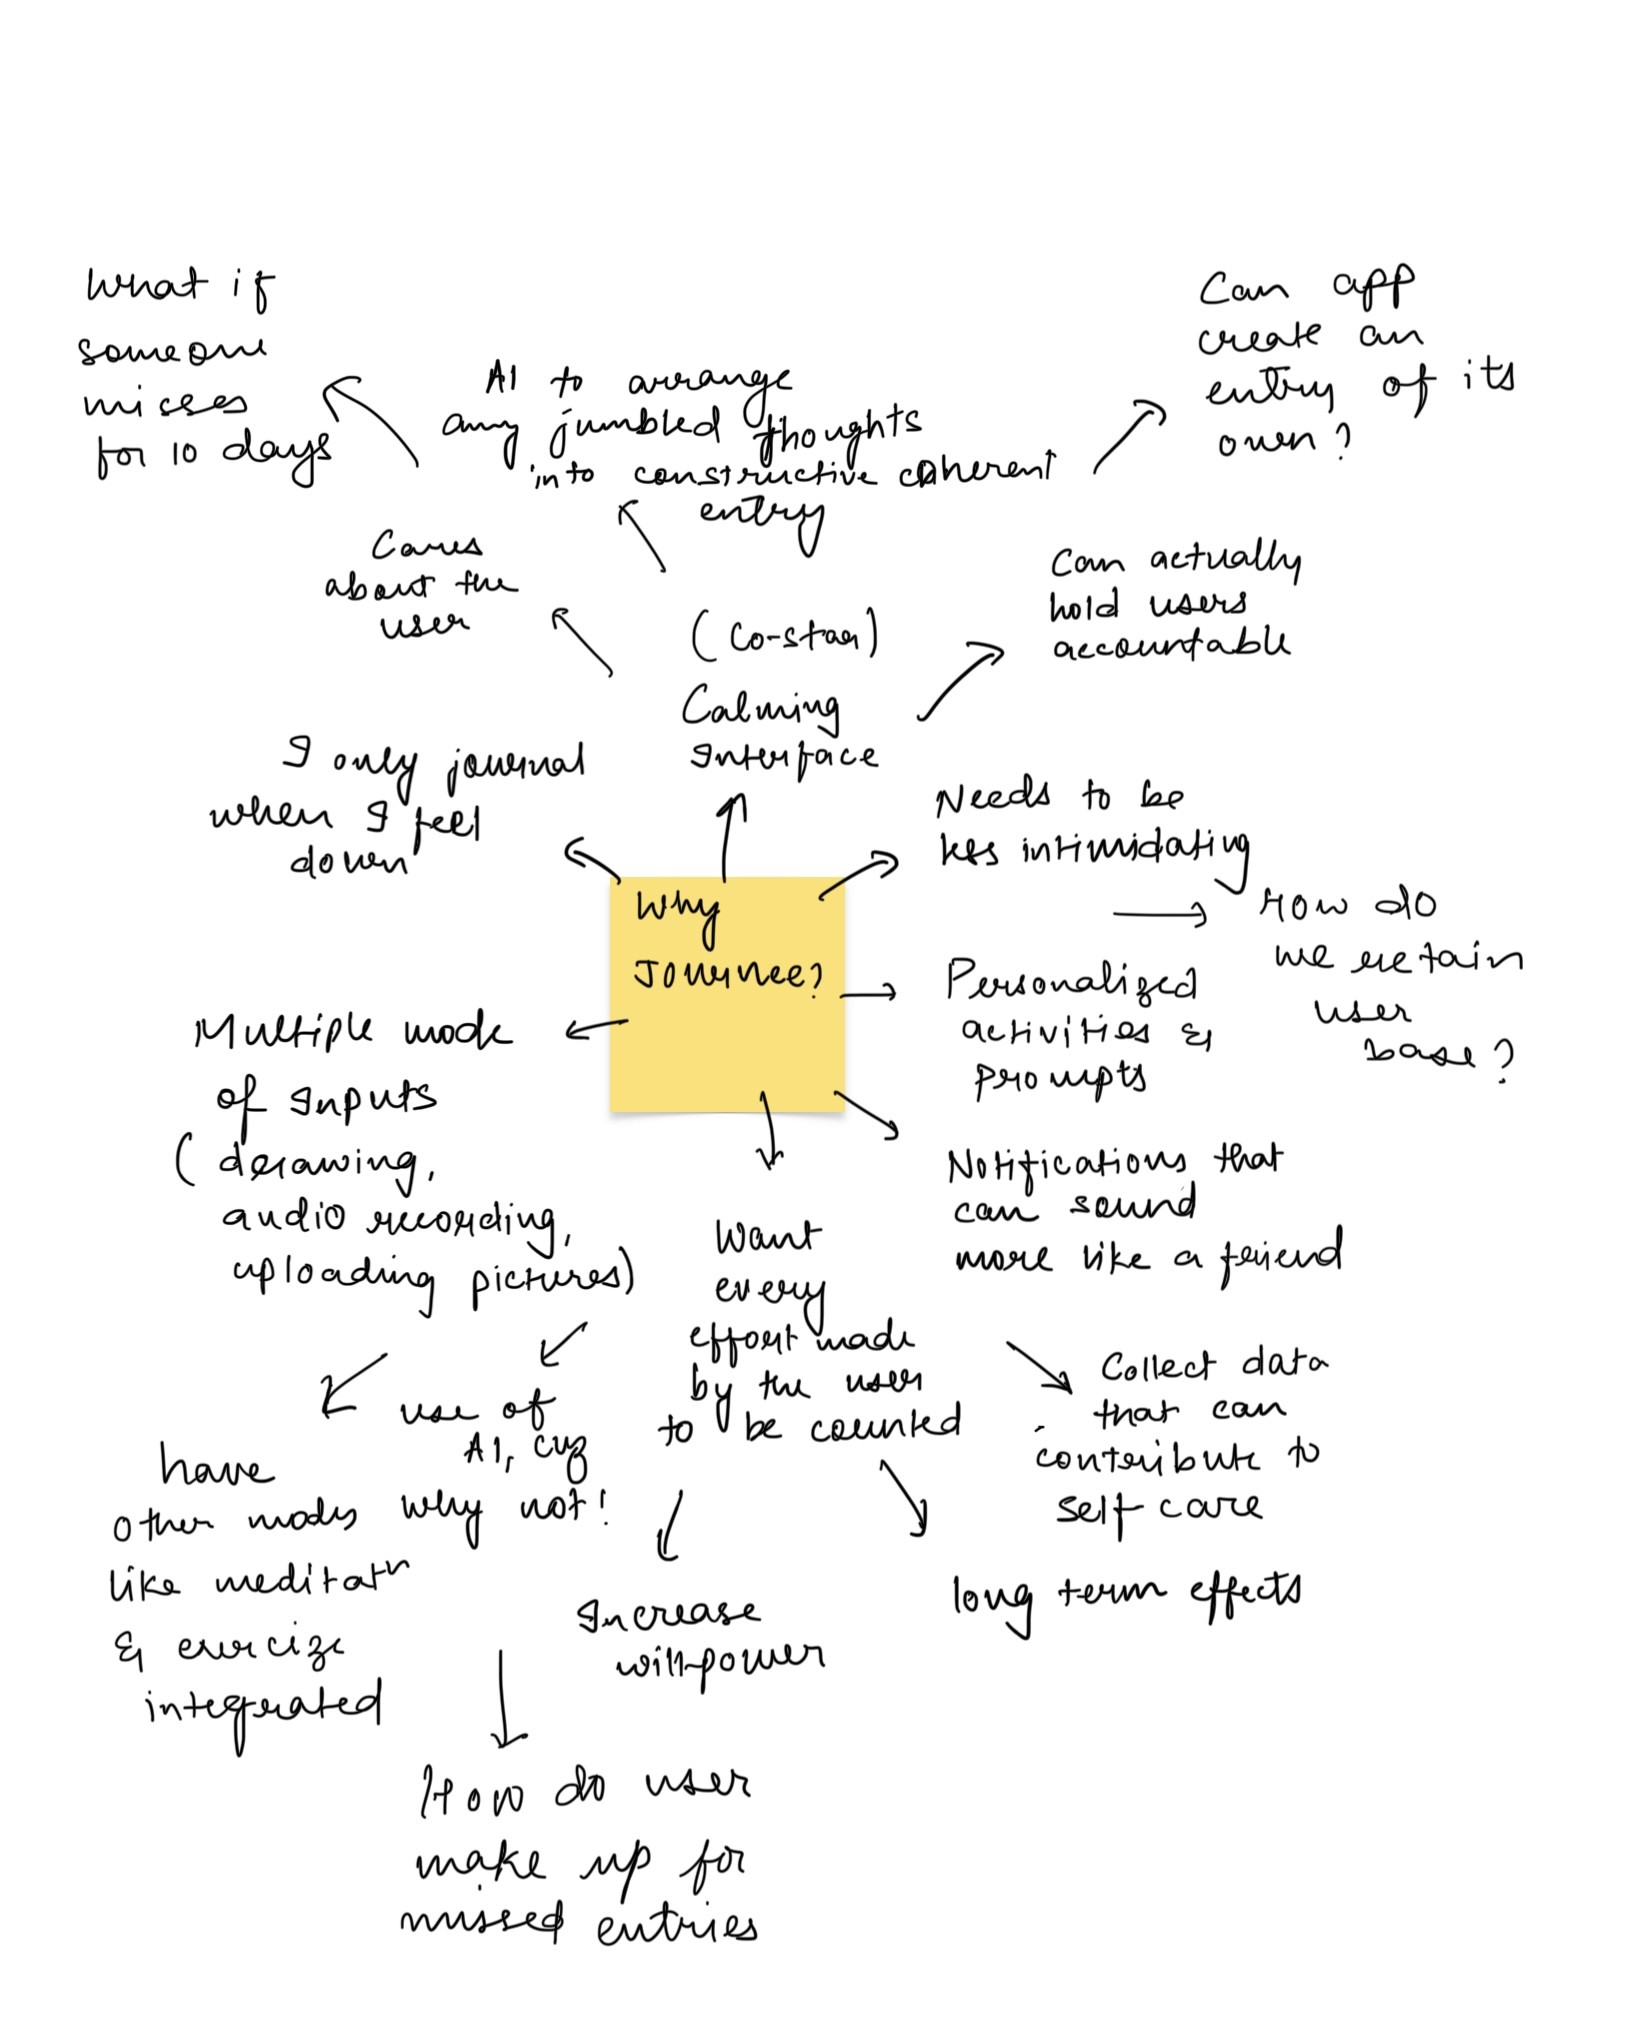 What if
someone
misses
for 10 days
AI to arrange
any jumbled thoughts
into constructive coherent
entry
Can app
create an
entry of its
own?
Cares
about the
user
(Co-star)
Calming
Interface
Can actually
hold users
accountable
I only journal
when I feel
down
Needs to be
less intimidating
How do
we retain
user
base?
Why
Journee?
Personalized
activities &
prompts
Multiple mode
of Inputs
(drawing,
audio recording,
uploading pictures)
Notifications that
can sound
more like a friend
Want
every
effort made
by the user
to be counted
Collect data
that can
contribute to
self care
use of
AI, cuz
why not!
have
other modes
like meditatn
& exercize
integrated
Increase
will-power
long term effects
How do user
make up for
missed entries